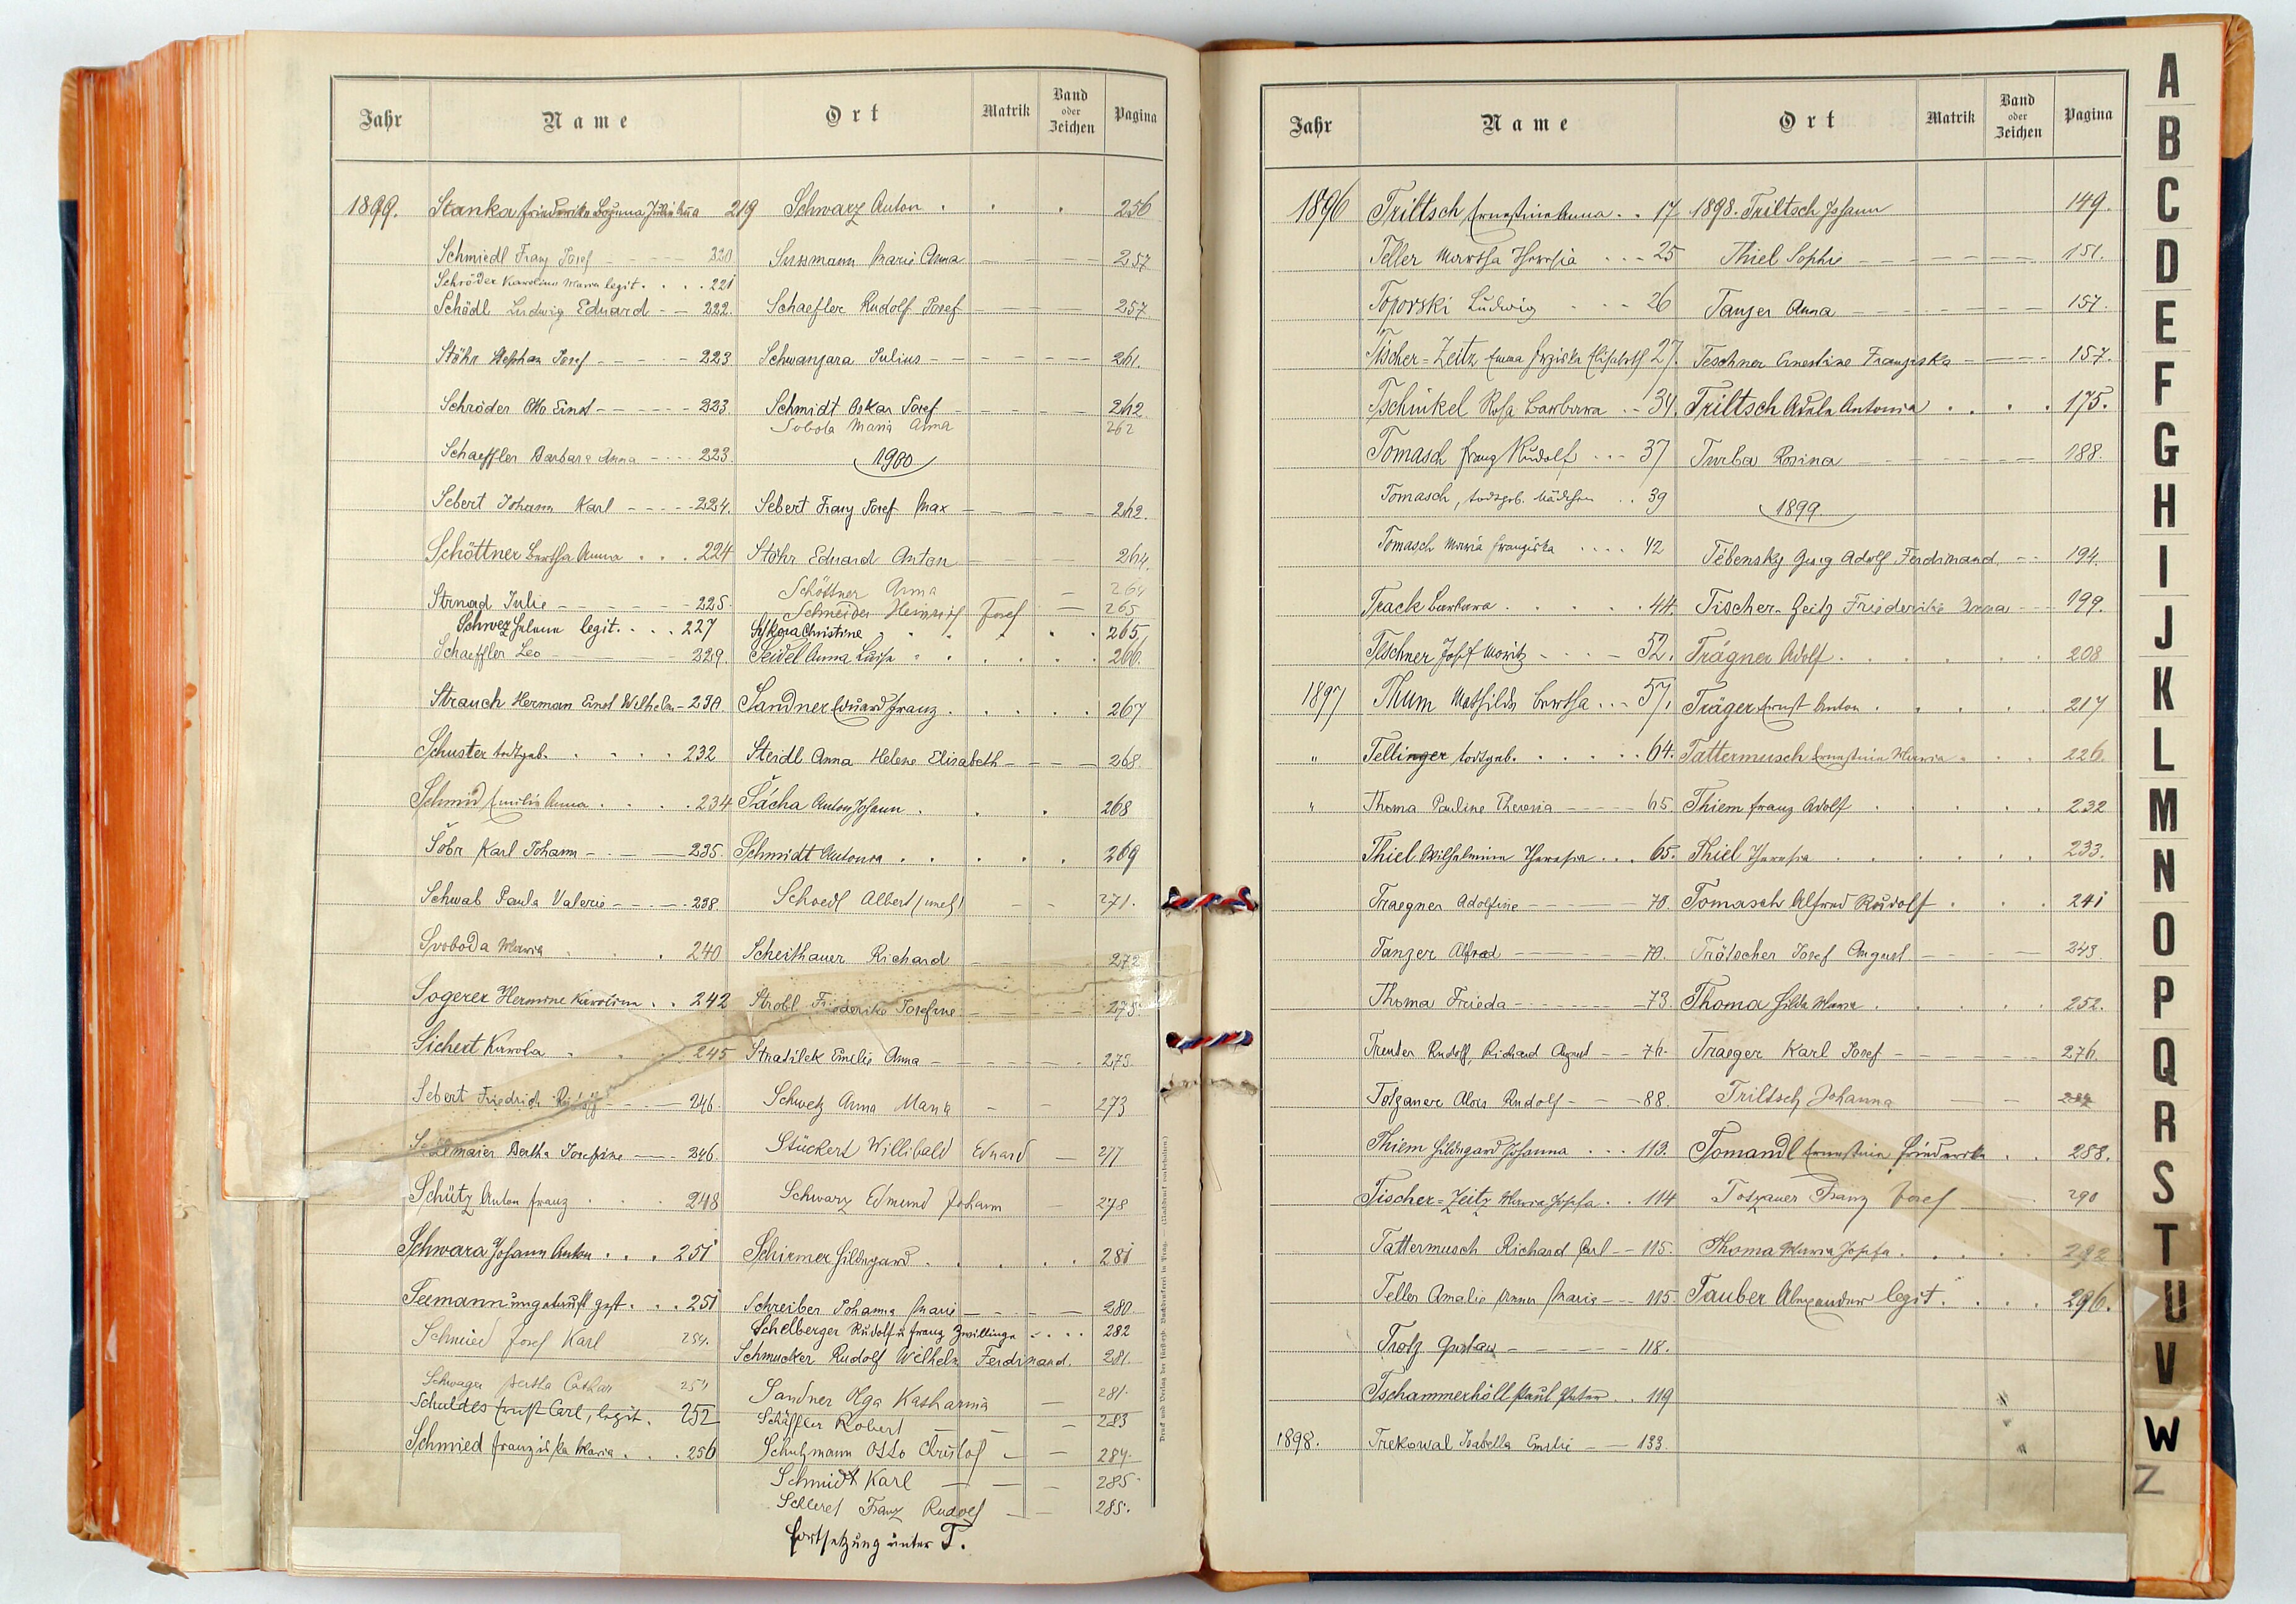 Jahr Name Ort Matrik Band oder Zeichen Pagina
1899. Stanka Friederike Bozena 219
Schmiedl Franz Josef 220
Schröder Karoline Maria legit. 221
Schödl Ludwig Eduard 222.
Stöhr Stephan Josef 223
Schröder Otto Ernst 223.
Schaeffler Barbara Anna 223.
Sebert Johann Karl 224.
Schöttner Bertha Anna 224
Strnad Julie 225.
Schwez Helene legit. 227
Schaeffler Leo 229.
Strauch Herman Ernst Wilhelm 230.
Schuster todtgeb. 232
Schmid Emilie Anna 234
Šobr Karl Johann 235.
Schwab Paula Valerie 238.
Svoboda Maria 240
Sogerer Hermine Karolina 242
Sichert Karola 245
Sebert Friedrich Rudolf 246.
Bertha Josefine 246.
Schütz Anton Franz 248
Schwara Johann Anton 251
Seemann ungetauft gest. 251
Schmied Josef Karl 254.
Schwager Bertha 254
Schuldes Ernst Carl, legit. 252
Schmied Franziska Maria 256
Schwarz Anton 256
Sussmann Marie Anna 257
Schaefler Rudolf Josef 257
Schwanzara Julius 261.
Schmidt Oskar Josef 262.
Sobota Maria Anna 262
1900
Sebert Franz Josef Max 262.
Stöhr Eduard Anton 264.
Schöttner Anna 264
Schneider Heinrich Josef 265
Sykora Christine 265.
Seidel Anna Luise 266.
Sandner Eduard Franz 267
Steidl Anna Helene Elisabeth 268.
Šácha Anton Johann 268
Schmidt Antonia 269
Schoedl Albert (unehl) 271.
Scheithauer Richard 272
Strobl Friederike Josefine 275.
Stratilek Emilie Anna 275
Schwetz Anna Maria 273
Stückert Willibald Eduard 277
Schwarz Edmund Johann 278
Schirmer Hildegard 281
Schreiber Johanna Marie 280.
Schelberger Rudolf u Franz Zwillinge 282
Schmucker Rudolf Wilhelm Ferdinand. 281.
Sandner Olga Katharina 281.
Schäffler Robert 283
Schutzmann Otto Christof 284.
Schmidt Karl 285.
Franz Rudolf 285.
Fortsetzung unter T.
Druck und Verlag der fürsterzb. Buchdruckerei in Prag. — (Nachdruck vorbehalten.)
Jahr Name Ort Matrik Band oder Zeichen Pagina
1896 Triltsch Ernestine Anna 17
Teller Martha Theresia 25
Toporski Ludwig 26
Tischer-Zeitz Emma Franziska Elisabeth 27.
Tschinkel Rosa Barbara 34.
Tomasch Franz Rudolf 37
Tomasch, todtgeb. Mädchen 39
Tomasch Maria Franziska 42
Track Barbara 44.
Tischner Josef Moritz 52.
1897 Thum Mathilde Bertha 57.
" Tellinger todtgeb. 64.
" Thoma Pauline Theresia 65
Thiel Wilhelmine Theresia 65.
Traegner Adolfine 70.
Tanzer Alfred 70.
Thoma Frieda 73.
Treuter Rudolf, Richard August 76.
Totzauer Alois Rudolf 88.
Thiem Hildegard Johanna 113.
Tischer-Zeitz Maria Josefa 114
Tattermusch Richard Carl 115.
Teller Amalie Anna Marie 115.
Trotz Gustav 118.
Tschammerhöll Paul Peter 119
1898. Trekowal Isabella Emilie 133.
1898. Triltsch Johann 149.
Thiel Sophie 151.
Tanzer Anna 157.
Teschner Ernestine Franziska 157.
Triltsch Adele Antonia 175.
Turba Rosina 188.
1899
Tébensky Georg Adolf Ferdinand 194.
Tischer-Zeitz Friederike Anna 199.
Trägner Adolf 208
Träger Ernst Anton 217
Tattermusch Ernestine Maria 226.
Thiem Franz Adolf 232
Thiel Theresia 233.
Tomasch Alfred Rudolf 241
Trötscher Josef August 243.
Thoma Hilda Maria 252.
Traeger Karl Josef 276.
Triltsch Johanna
Tomandl Ernestine Friederike 288.
Totzauer Franz Josef 290
Thoma Maria Josefa 292
Tauber Alexander legit. 296.
A
B
C
D
E
F
G
H
I
J
K
L
M
N
O
P
Q
R
S
T
U
V
W
Z